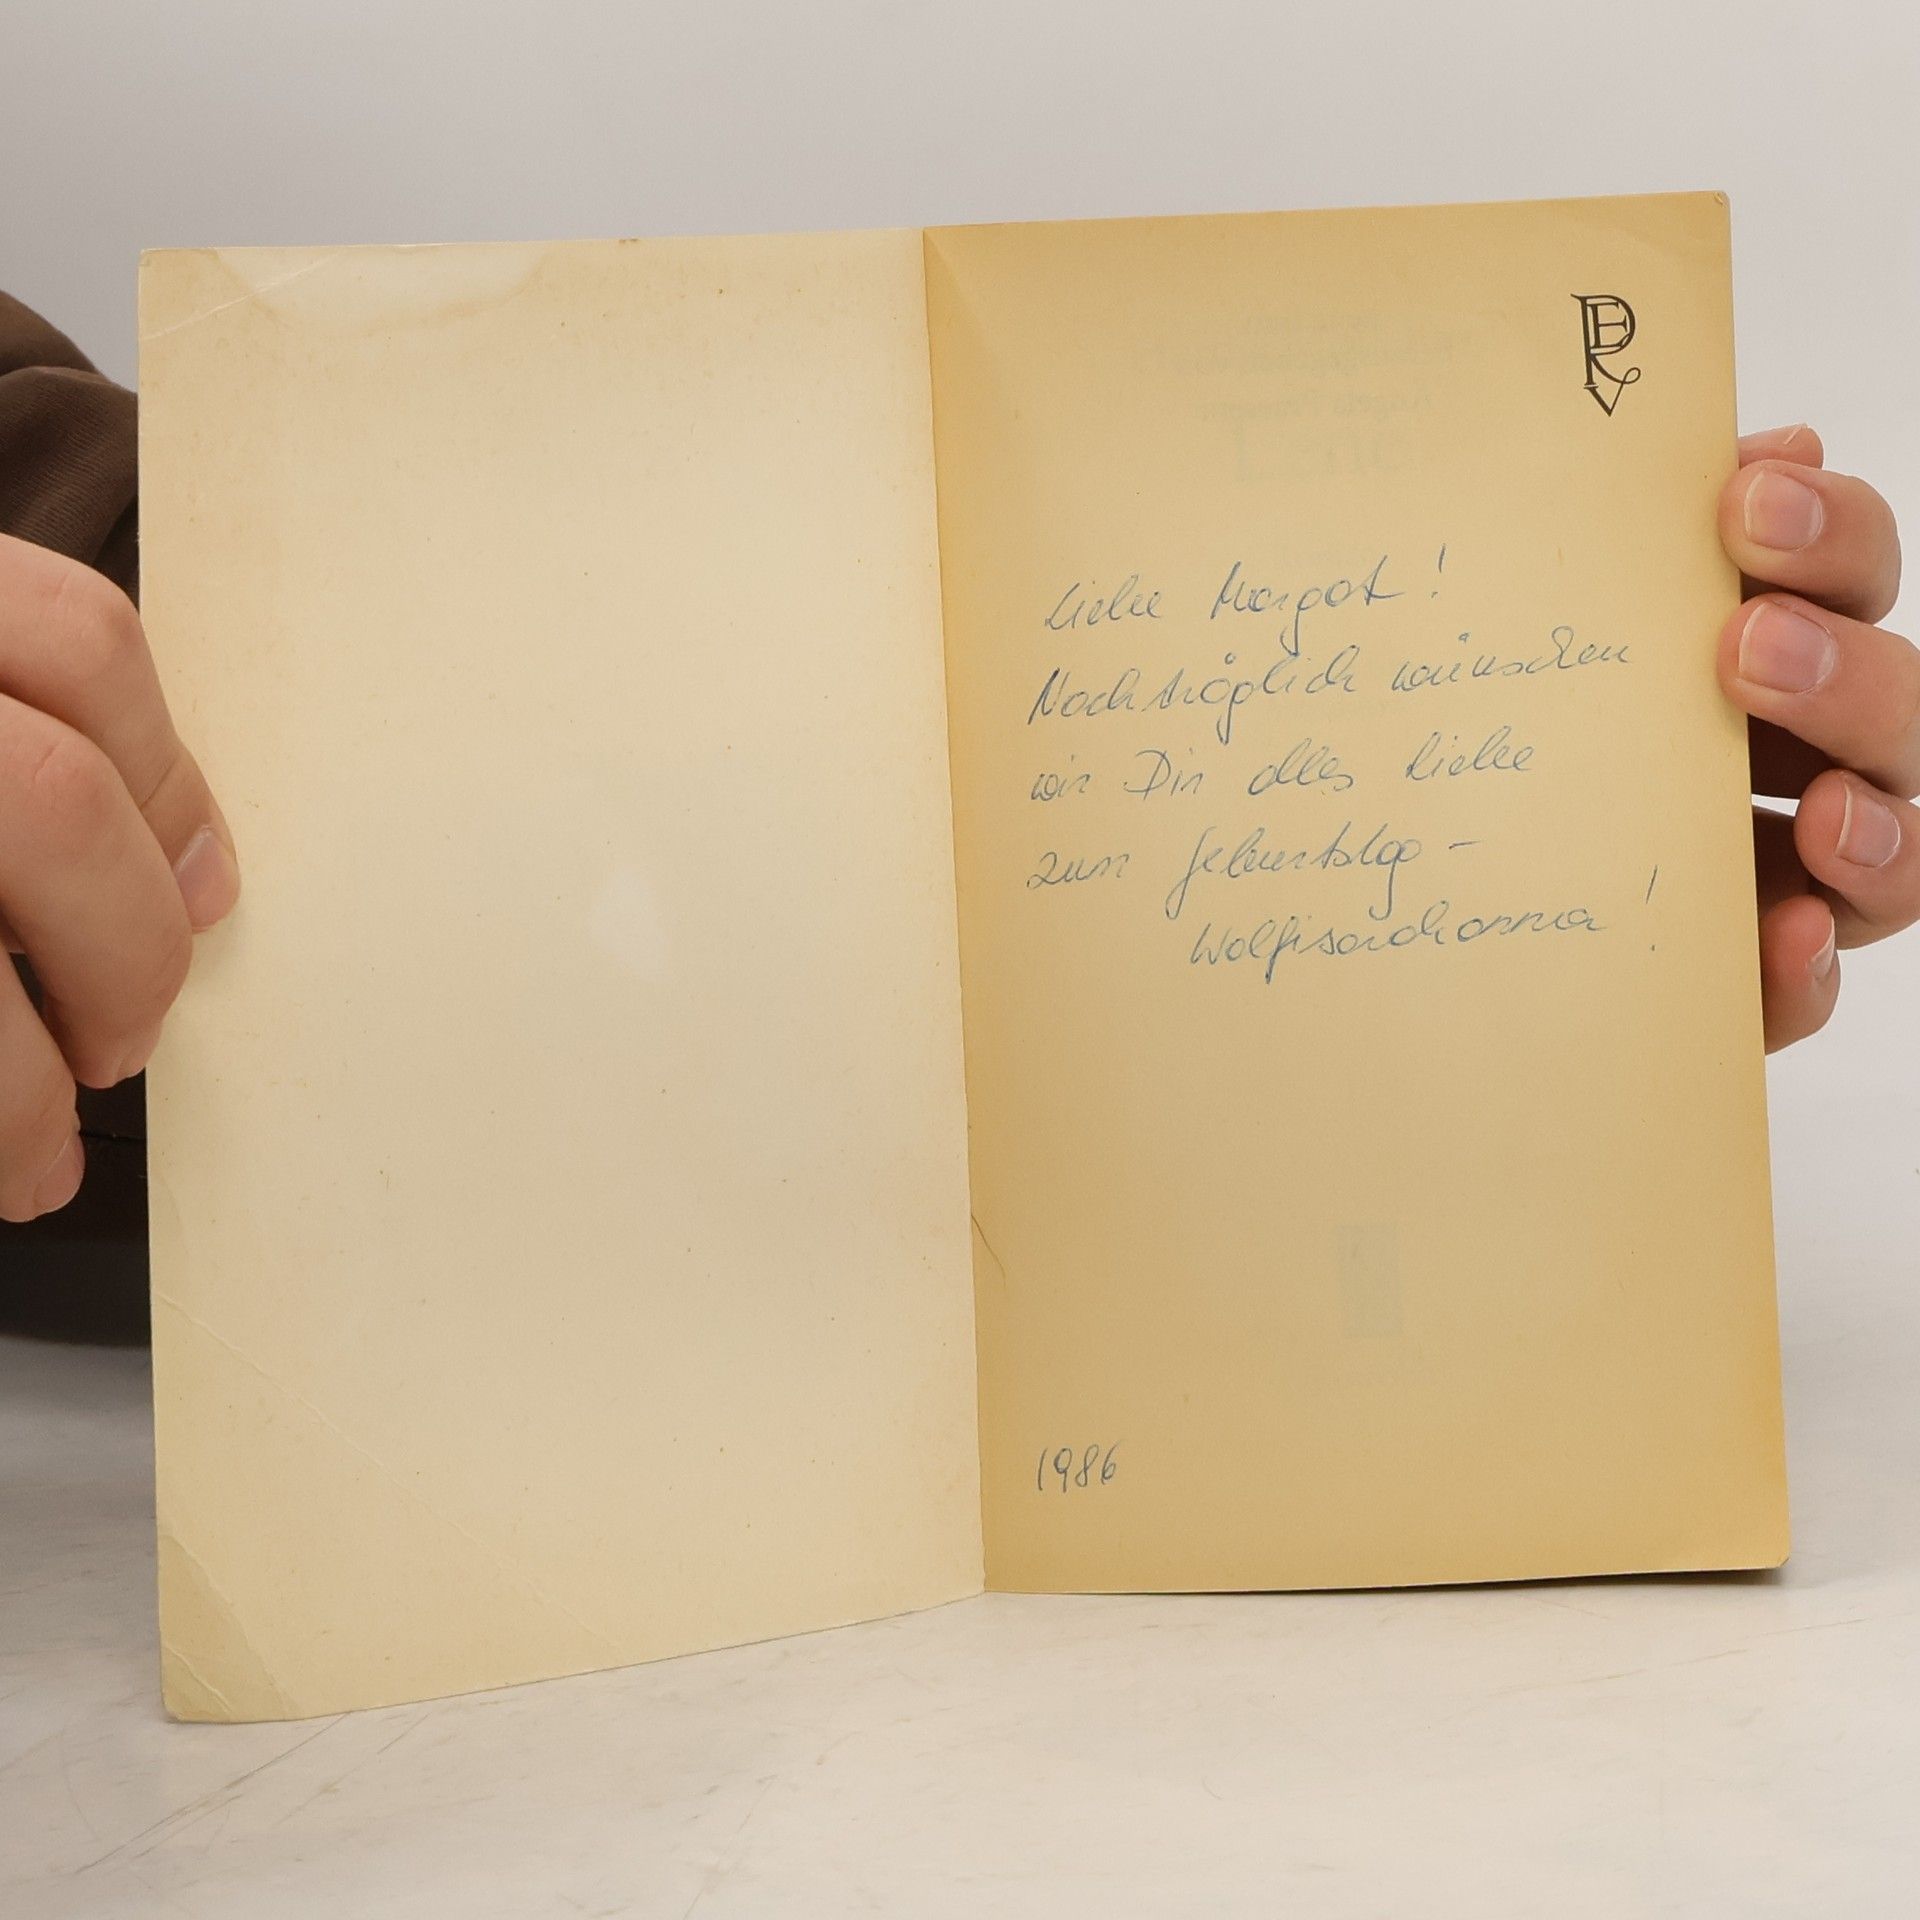 Liebe Margot!
Nachträglich wünschen
wir Dir alles Liebe
zum Geburtstag -
1986